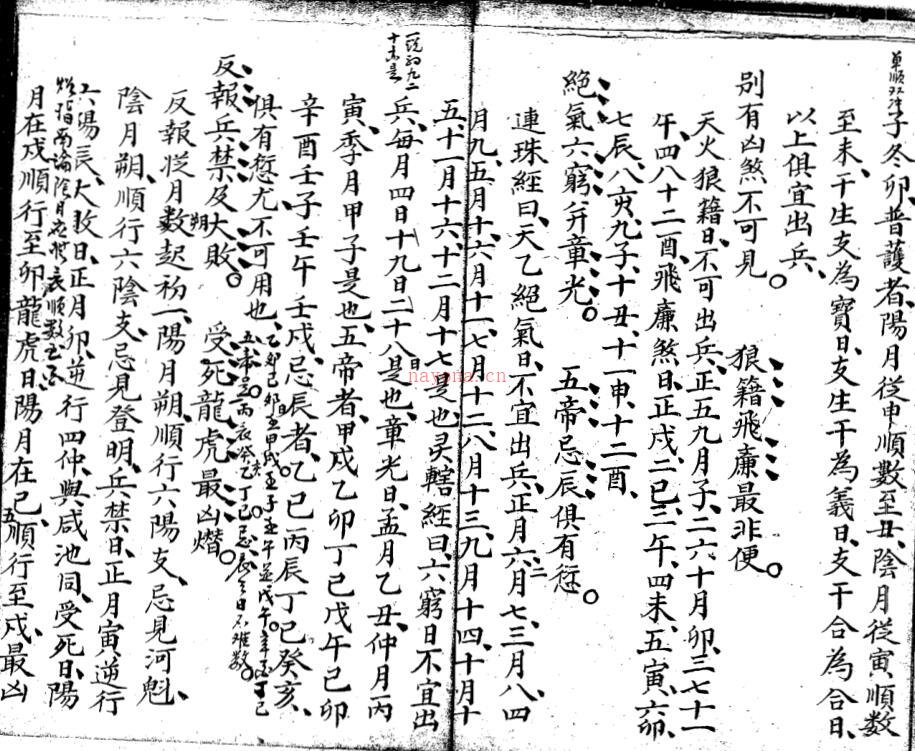 子冬卯、普護者、陽月從申順數至丑、陰月從寅順數
至未、干生支為寶日、支生干為義日、支干合為合日、
以上俱宜出兵、
别有凶煞不可見。 狼籍飛廉最非便。
天火狼籍日、不可出兵、正五九月子、二六十月卯、三七十一
午、四八十二酉、飛廉煞日、正戌、二巳、三午、四未、五寅、六卯、
七辰、八亥、九子、十丑、十一申、十二酉、
絕氣六窮并章光。 五帝忌辰俱有愆。
連珠經曰、天乙絕氣日、不宜出兵、正月六、二月七、三月八、四
月九、五月十、六月十一、七月十二、八月十三、九月十四、十月十
五、十一月十六、十二月十七是也、灵轄經曰、六窮日不宜出
兵、每月四日十九日二十八日是也、章光日、孟月乙丑、仲月丙
寅、季月甲子是也、五帝者、甲戌乙卯丁巳戊午己卯
辛酉壬子壬午壬戌、忌辰者、乙巳丙辰丁巳癸亥、
俱有愆尤、不可用也、
反報兵禁及大敗。 受死龍虎最凶熸。
反報從月數起初一、陽月朔、順行六陽支、忌見河魁、
陰月朔、順行六陰支、忌見登明、兵禁日、正月寅、逆行
六陽辰、大敗日、正月卯、逆行四仲、與咸池同、受死日、陽
月在戌、順行至卯、龍虎日、陽月在巳、順行至戌、最凶
nayona.cn